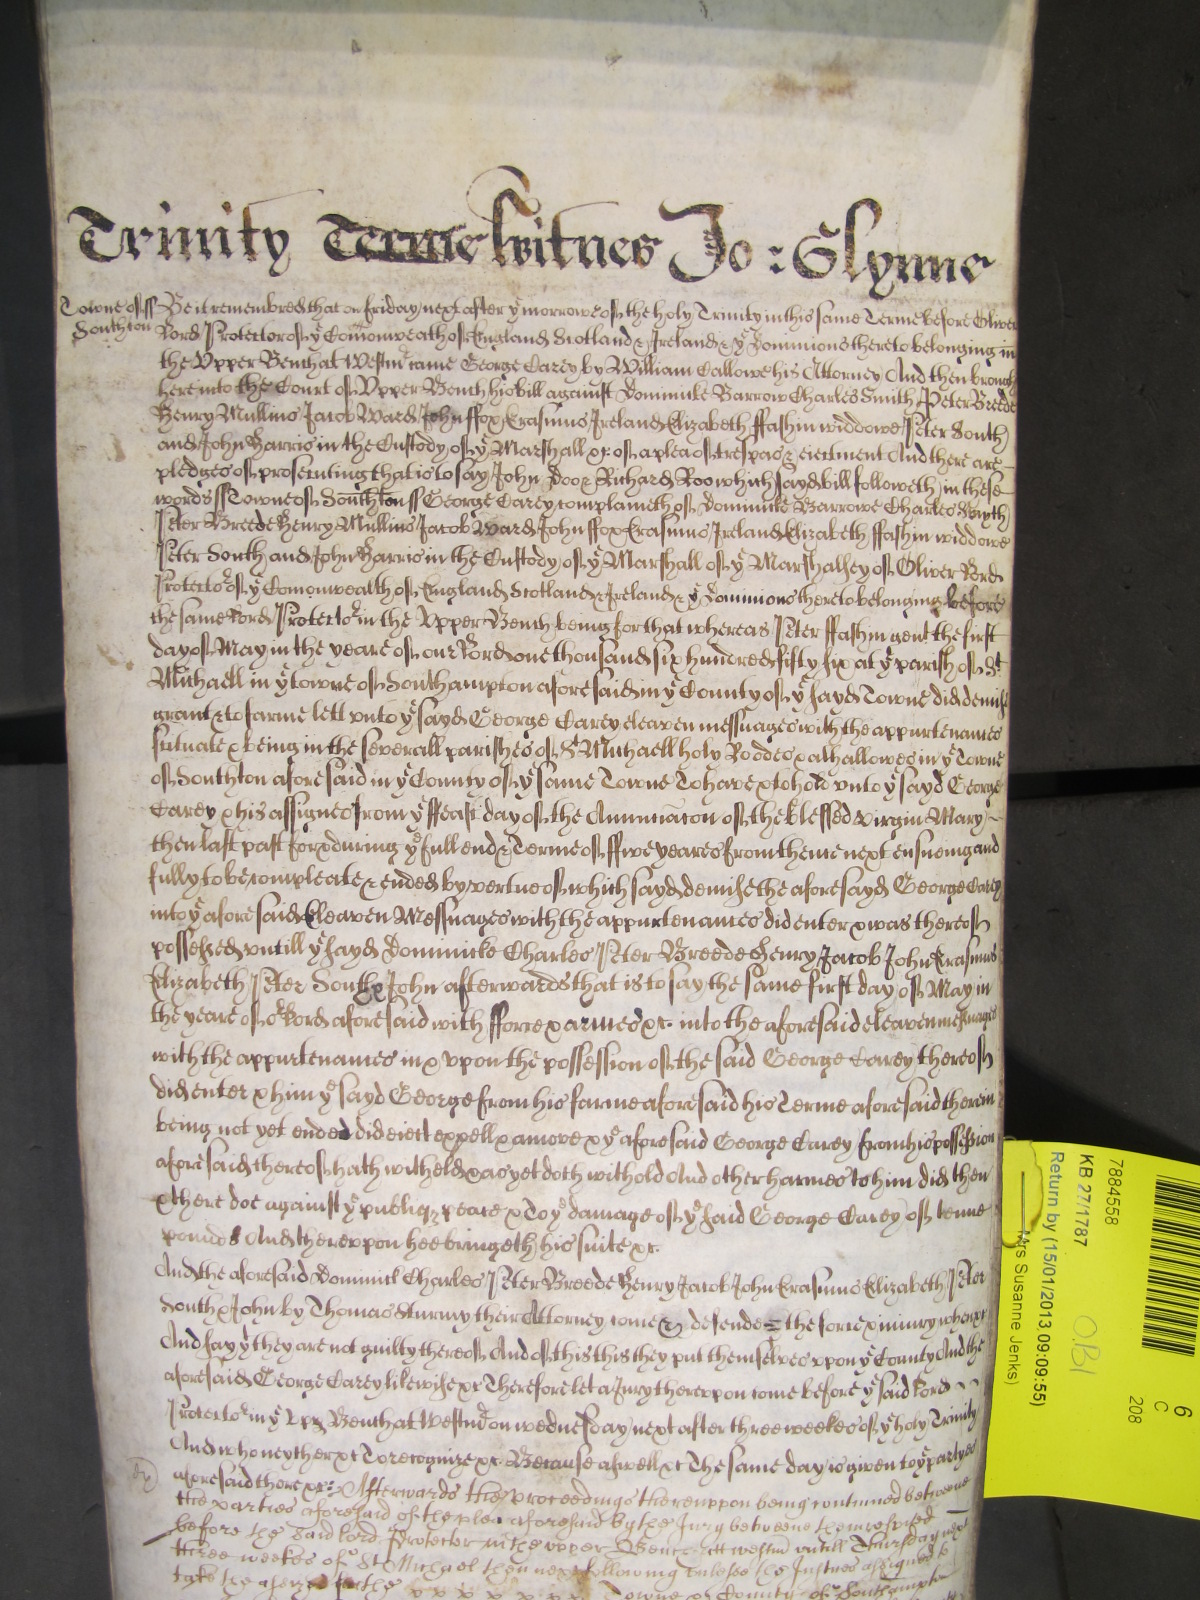 Trinity Terme Witnes Jo: Glynne
Towne of ss
Southton
Be it remembred that on friday next after yͤ morrowe of the holy Trinity in this same Terme before Oliver
Lord Protector of yͤ Comonweath of England Scotland & Ireland & yͤ Dominions thereto belonging in
the Upper Bench at Westmͬ came George Carey by William Callowe his Attorney And then brough
here into the Court of Upper Bench his bill against Dominicke Barrow Charles Smith Peter Breede
Henry Mullins Jacob Ward John ffox Erasmus Ireland Elizabeth ffashin widdowe Peter South
and John Harris in the Custody of yͤ Marshall &c of a plea of trespas & eiectment And there are
pledges of prosecuting that is to say John Doo & Richard Roo which sayd bill followeth in these
words ss Towne of Southton ss George Carey complaineth of Dominicke Barrowe Charles Smyth
Peter Breede Henry Mullins Jacob Ward John ffox Erasmus Ireland Elizabeth ffashin widdowe
Peter South and John Harris in the Custody of yͤ Marshall of yͤ Marshalsey of Oliver Lord
Protectoͬ of yͤ Comonwealth of England Scotland & Ireland & yͤ dominions thereto belonging before
the same Lord Protectoͬ in the Upper Bench being for that whereas Peter ffashin gent the first
day of May in the yeare of our Lord one thousand six hundred fifty six at yͤ parish of Sͭ
Michaell in yͤ towne of Southampton aforesaid in yͤ County of yͤ sayd Towne did demise
grant & to farme lett unto yͤ sayd George Carey eleaven messuages with the appurtenances
scituate & being in the severall parishes of Sͭ Michaell holy Roodes & alhallowes in yͤ Towne
of Southton aforesaid in yͤ County of yͤ same Towne To have & to hold unto yͤ sayd George
Carey & his assignes from yͤ ffeast day of the Annunciacon of the blessed virgin Mary
then last past for & during yͤ full end & Terme of ffive yeares from thence next ensueing and
fully to be compleate & ended by vertue of which sayd demise the aforesayd George Carey
into yͤ aforesaid Eleaven Messuages with the appurtenances did enter & was thereof
possessed untill yͤ sayd Dominicke Charles Peter Breede Henry Jacob John Erasmus
Elizabeth Peter South & John afterwards that is to say the same first day of May in
the yeare of oͬ Lord aforesaid with fforce & armes &c. into the aforesaid eleaven messuages
with the appurtenances in & upon the possession of the said George Carey thereof
did enter & him yͤ sayd George from his farme aforesaid his Terme aforesaid therein
being not yet ended did eiect expell & amove & yͤ aforesaid George Carey from his possession
aforesaid thereof hath witheld & as yet doth withold And other harmes to him did then
& there doe against yͤ publique peace & To yͤ damage of yͤ said George Carey of tenne
pounds And thereupon hee bringeth his suite &c.
And the aforesaid Dominick Charles Peter Breede Henry Jacob John Erasmus Elizabeth Peter
South & John by Thomas Sturmy their Attorney come & defende the force & iniury when &c
And say yͭ they are not guilty thereof And of this this they put themselves upon yͤ County And the
aforesaid George Carey likewise &c Therefore let a Jury thereupon come before yͤ said Lord
Protectoͬ in yͤ Upper Bench at Westmͬ on wednesday next after three weekes of yͤ holy Trinity
And who neyther &c To recognize &c Because aswell &c The same day is given to yͤ partyes
aforesaid there &c: Afterwards the proceedings thereuppon being continued betweene
the parties aforesaid of the plea aforesaid by the Jury betweene them respited
before the said Lord Protector in the upper Bench att westmͬ untill Thursday next
three weekes of Sͭ Michael then next following unlesse the Justices assigned to
take the assizes in the Towne & County of Southampton
7884558
KB 27/1787
Return by (15/01/2013 09:09:55)
Mrs Susanne Jenks)
6
C
208